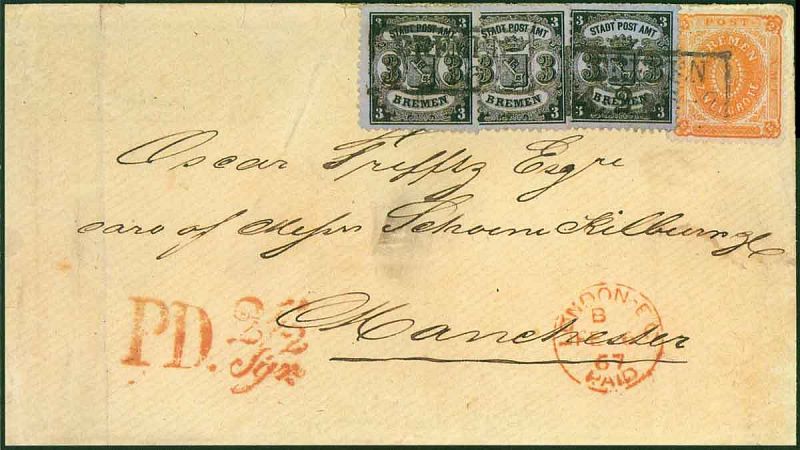 STADT POST AMT STADT POST AMT STADT POST AMT POST
3 3 3 3 3 3 BREMEN
BREMEN BREMEN BREMEN
3 3 3 3 3 3
Oscar Trefftz Esqre
care of Messrs Schoene Kilburn & Co
Manchester
PD. 2 1/2
Sgr.
LONDON-E
B
67
PAID